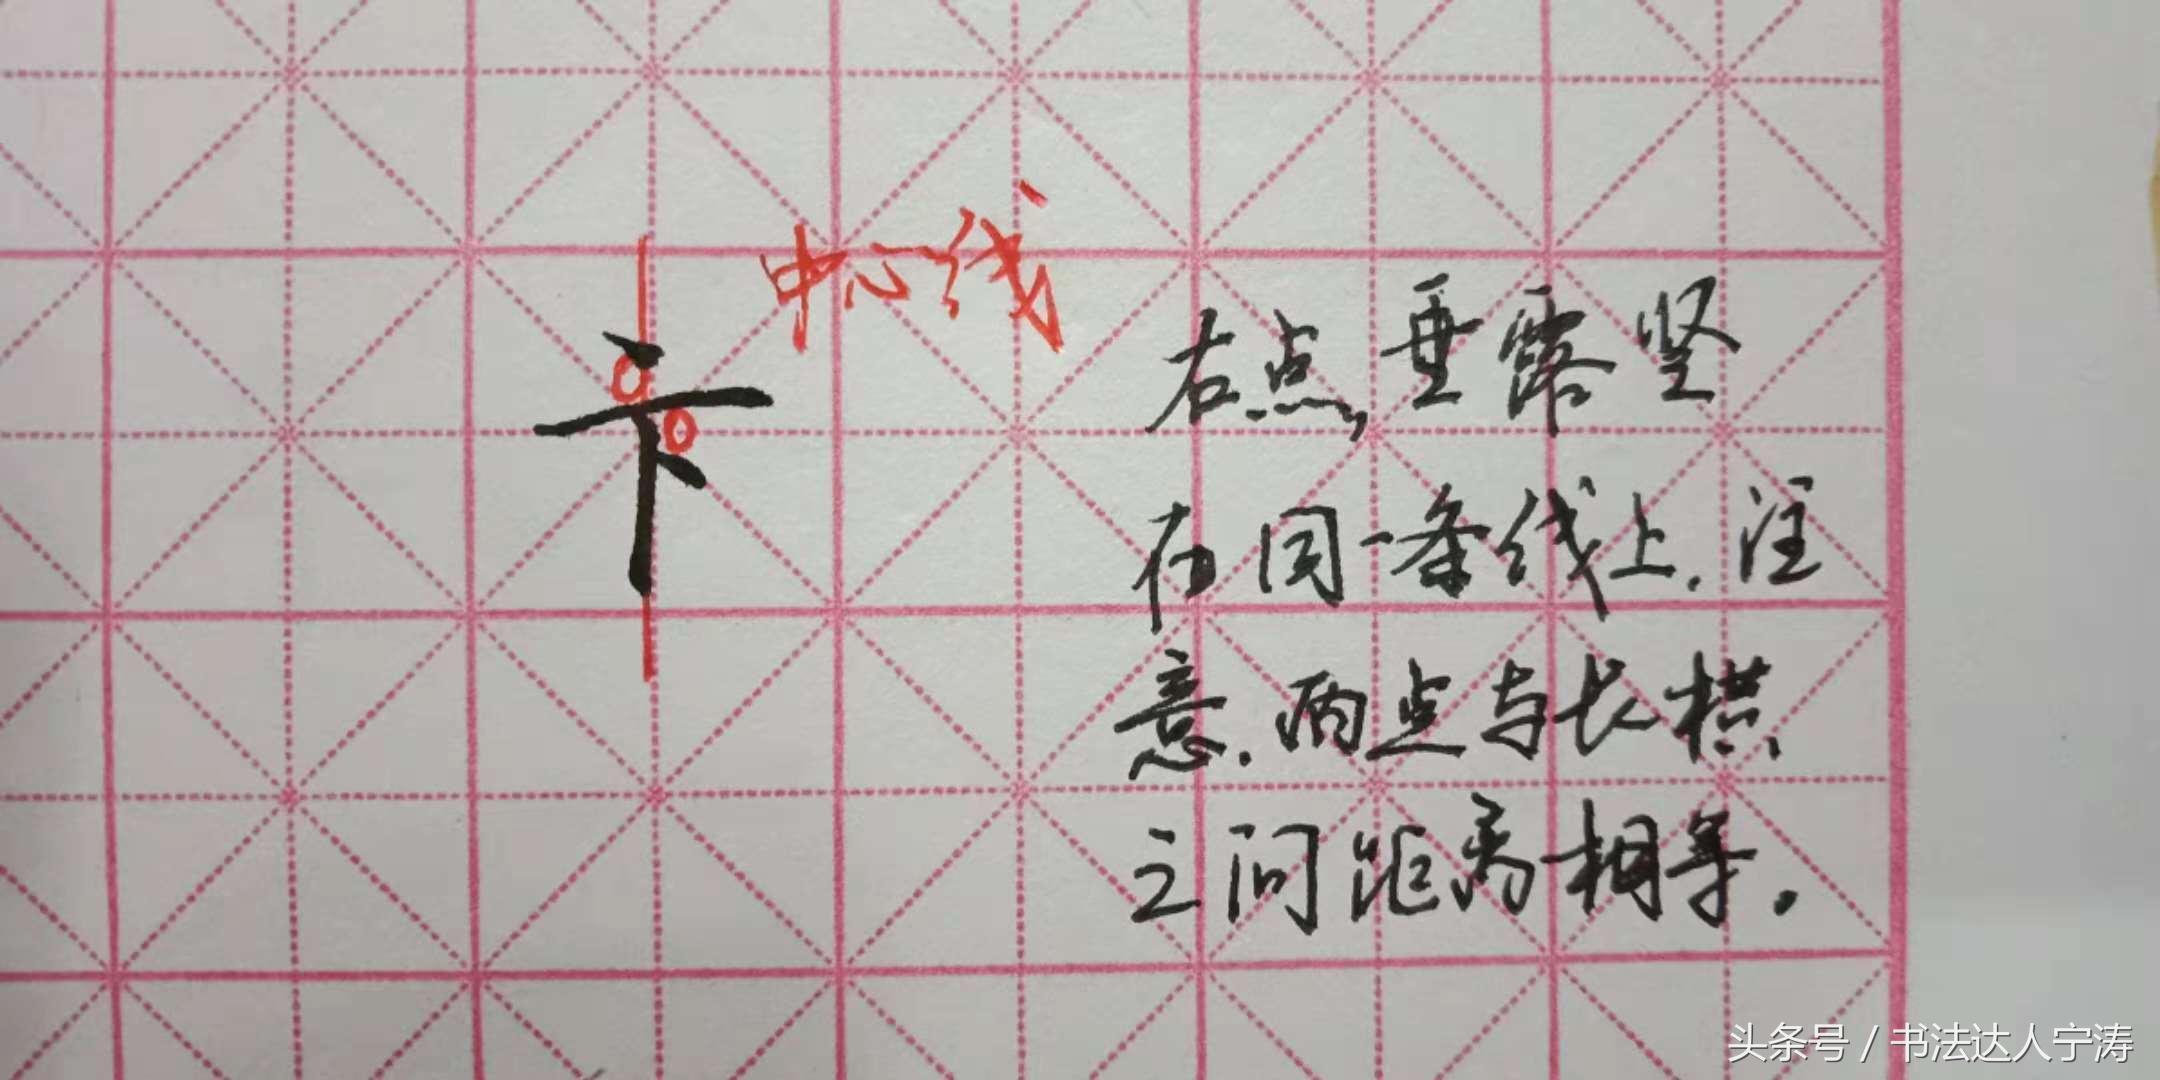 中心线
卞
右点,垂露竖
在同一条线上.注
意.两点与长横
之间距离相等.
头条号 / 书法达人宁涛